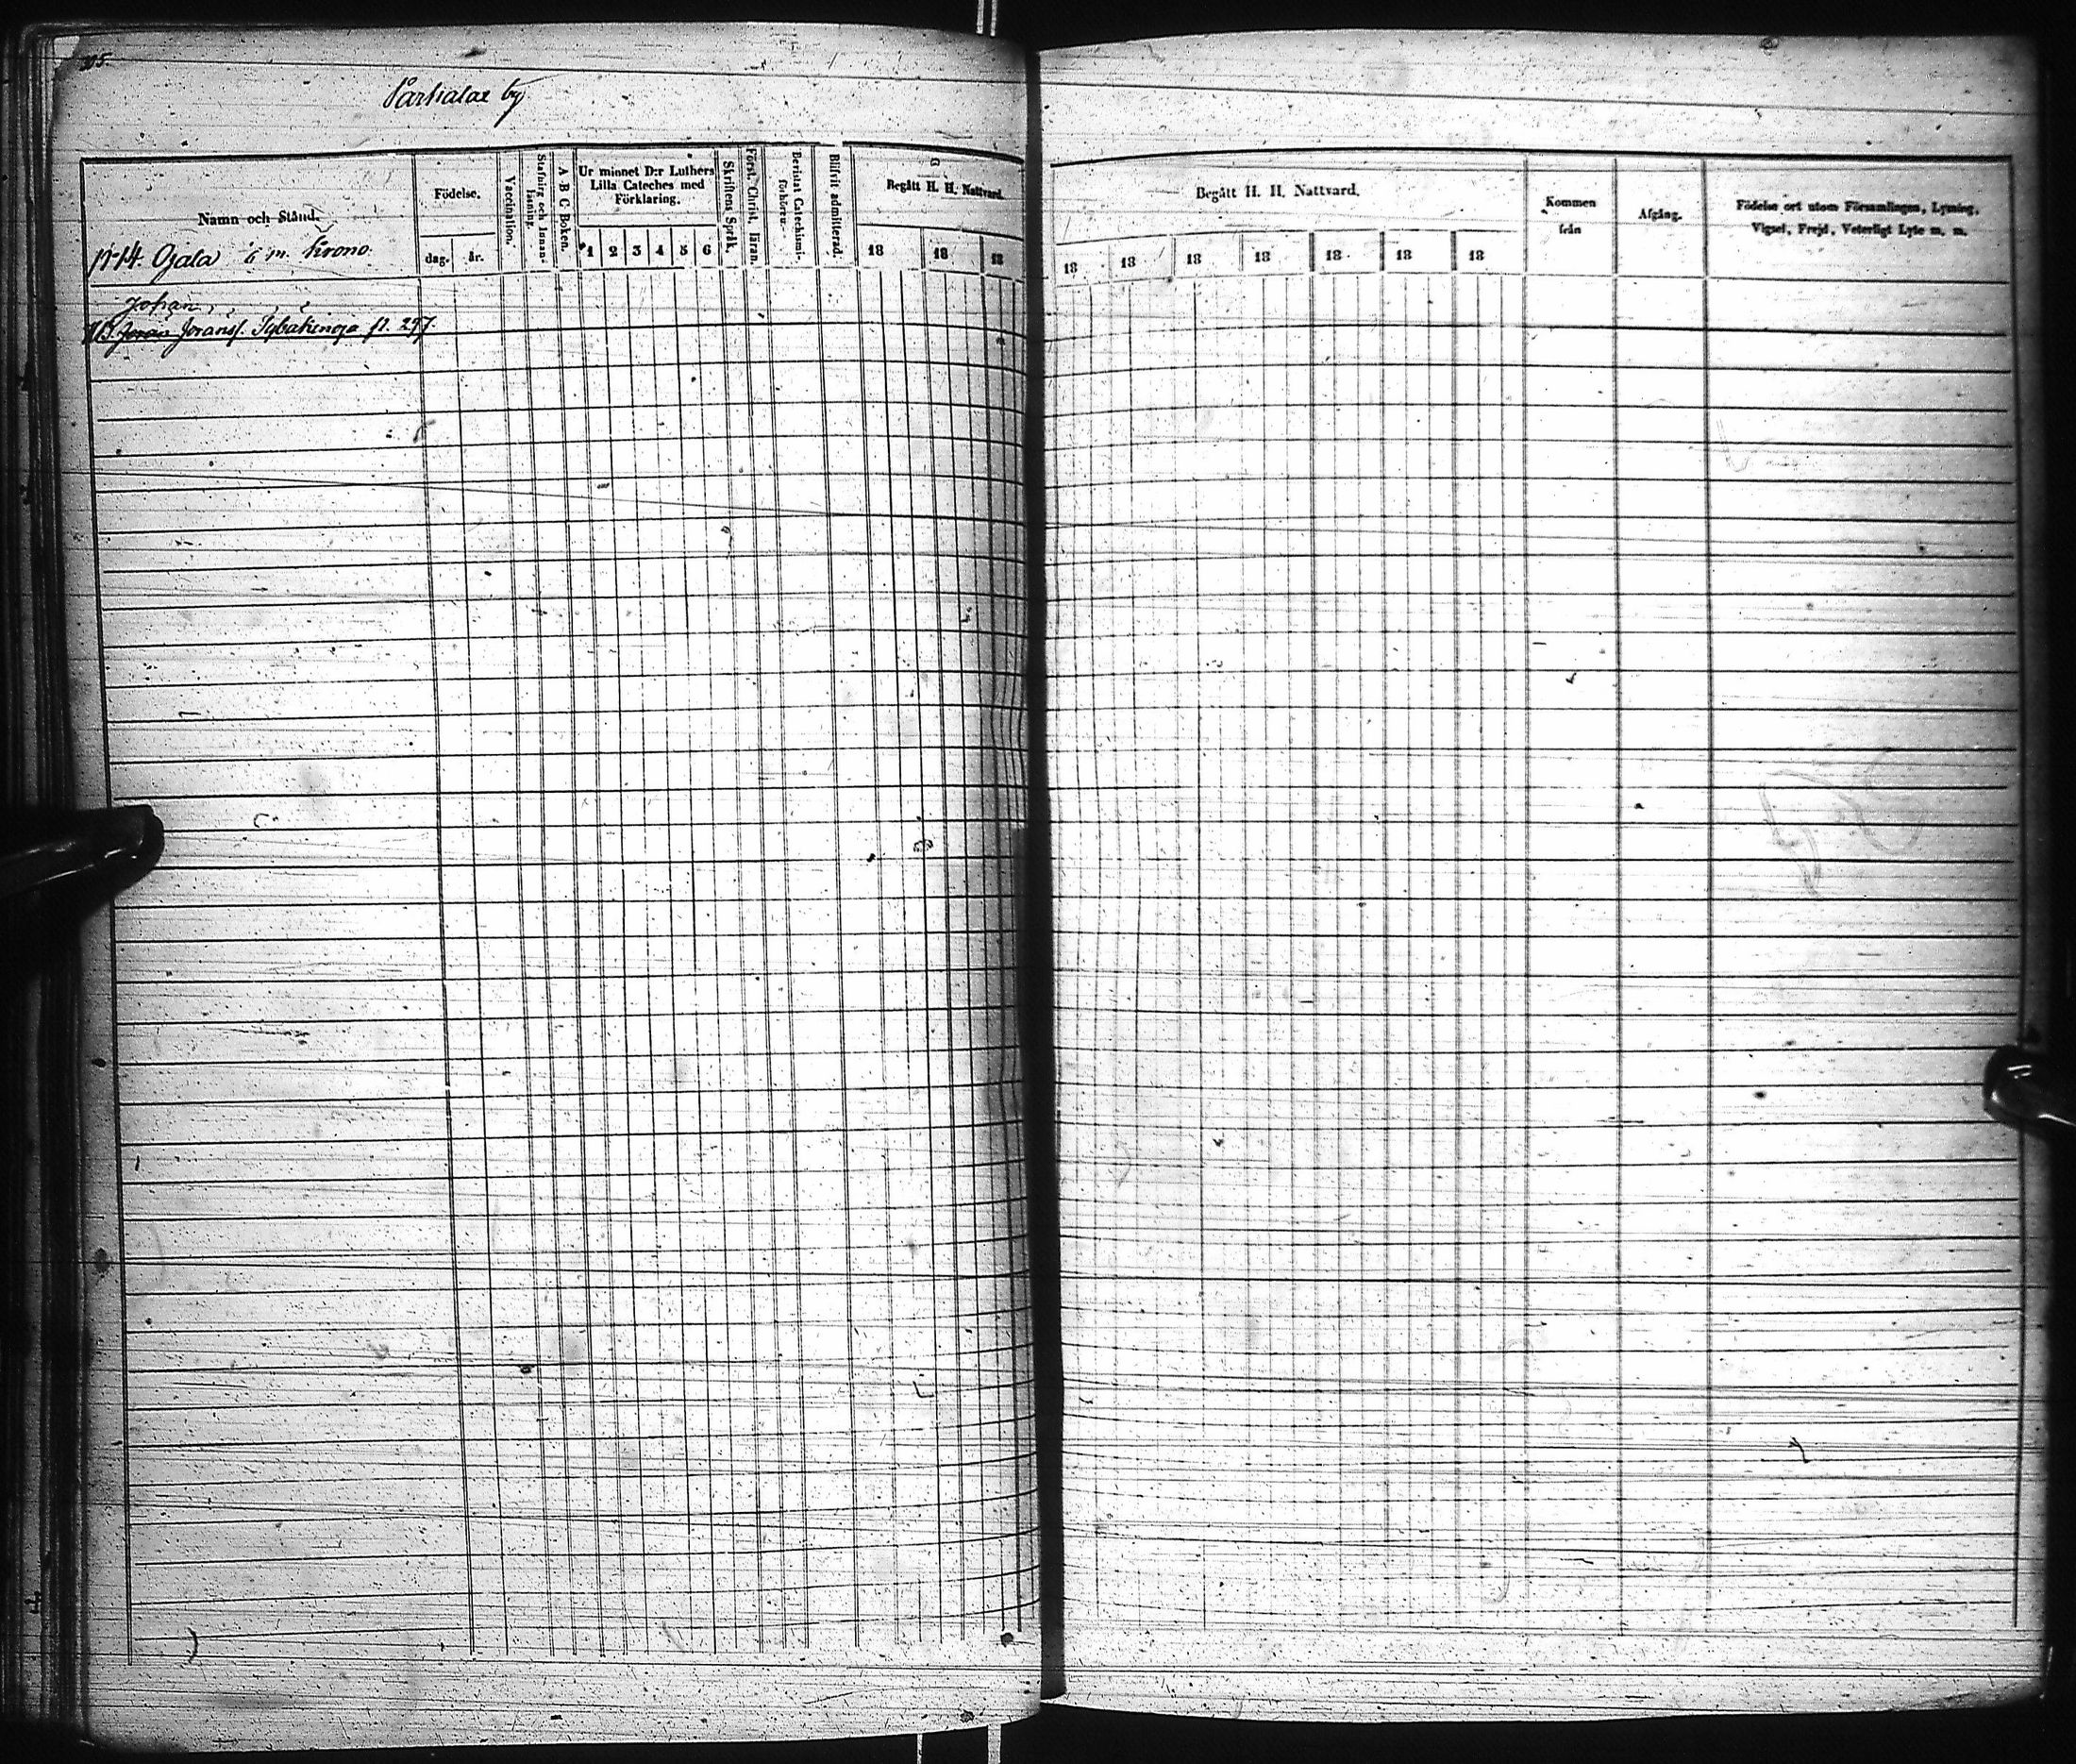 by
Namn och Stånd.
Födelse.
dag.
år.
Vaccination.
Stafning och Innan-
läsning.
A B C Boken.
Ur minnet D:r Luthers
Lilla Cateches med
Förklaring.
1 2 3 4 5 6
Skriftens Språk.
Först. Christ. läran.
Bevistat Catechismi-
förhören.
Blifvit admitterad.
Begått H. H. Nattvard.
18 18 18
No 14. Ojala ⅙ m. Krono
Johan
NB. Joran Joranss. Tybakinoja p. 297.
Begått H. H. Nattvard.
18 18 18 18 18 18 18
Kommen
från
Afgång.
Födelse ort utom Församlingen, Lysning,
Vigsel, Frejd, Veterligt Lyte m. m.